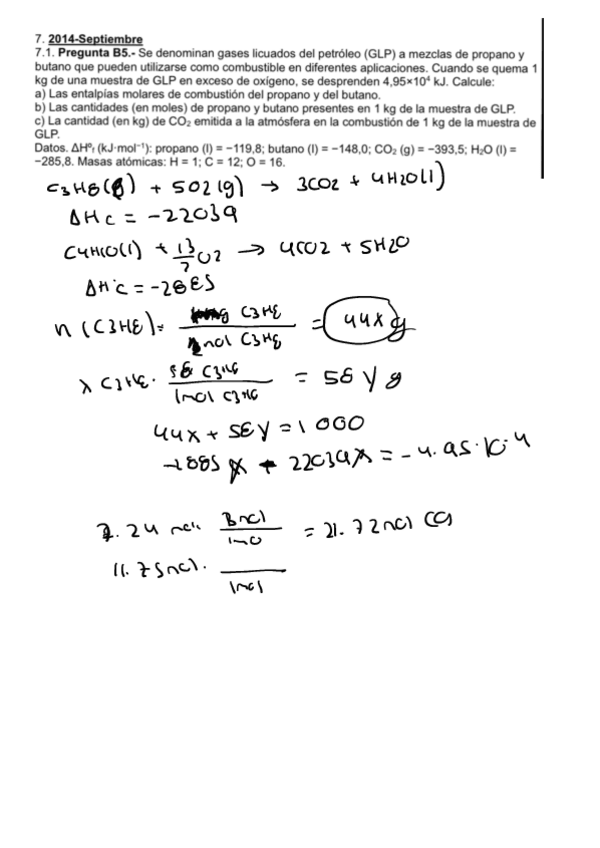 7. 2014-Septiembre
7.1. Pregunta B5.- Se denominan gases licuados del petróleo (GLP) a mezclas de propano y
butano que pueden utilizarse como combustible en diferentes aplicaciones. Cuando se quema 1
kg de una muestra de GLP en exceso de oxígeno, se desprenden 4,95×10⁴ kJ. Calcule:
a) Las entalpías molares de combustión del propano y del butano.
b) Las cantidades (en moles) de propano y butano presentes en 1 kg de la muestra de GLP.
c) La cantidad (en kg) de CO₂ emitida a la atmósfera en la combustión de 1 kg de la muestra de
GLP.
Datos. ΔHºf (kJ·mol⁻¹): propano (l) = −119,8; butano (l) = −148,0; CO₂ (g) = −393,5; H₂O (l) =
−285,8. Masas atómicas: H = 1; C = 12; O = 16.
C3H8(g) + 5O2(g) → 3CO2 + 4H2O(l)
ΔHc = -22039
C4H10(l) + 13/2 O2 → 4CO2 + 5H2O
ΔHc = -2885
n (C3H8) = g C3H8 / mol C3H8 = 44x g
58 / 1mol = 58 y g
44x + 58y = 1000
22039x = -4.95·10^4
7.24 mol 3mol / 1mol = 21.72mol
11.75mol · / 1mol